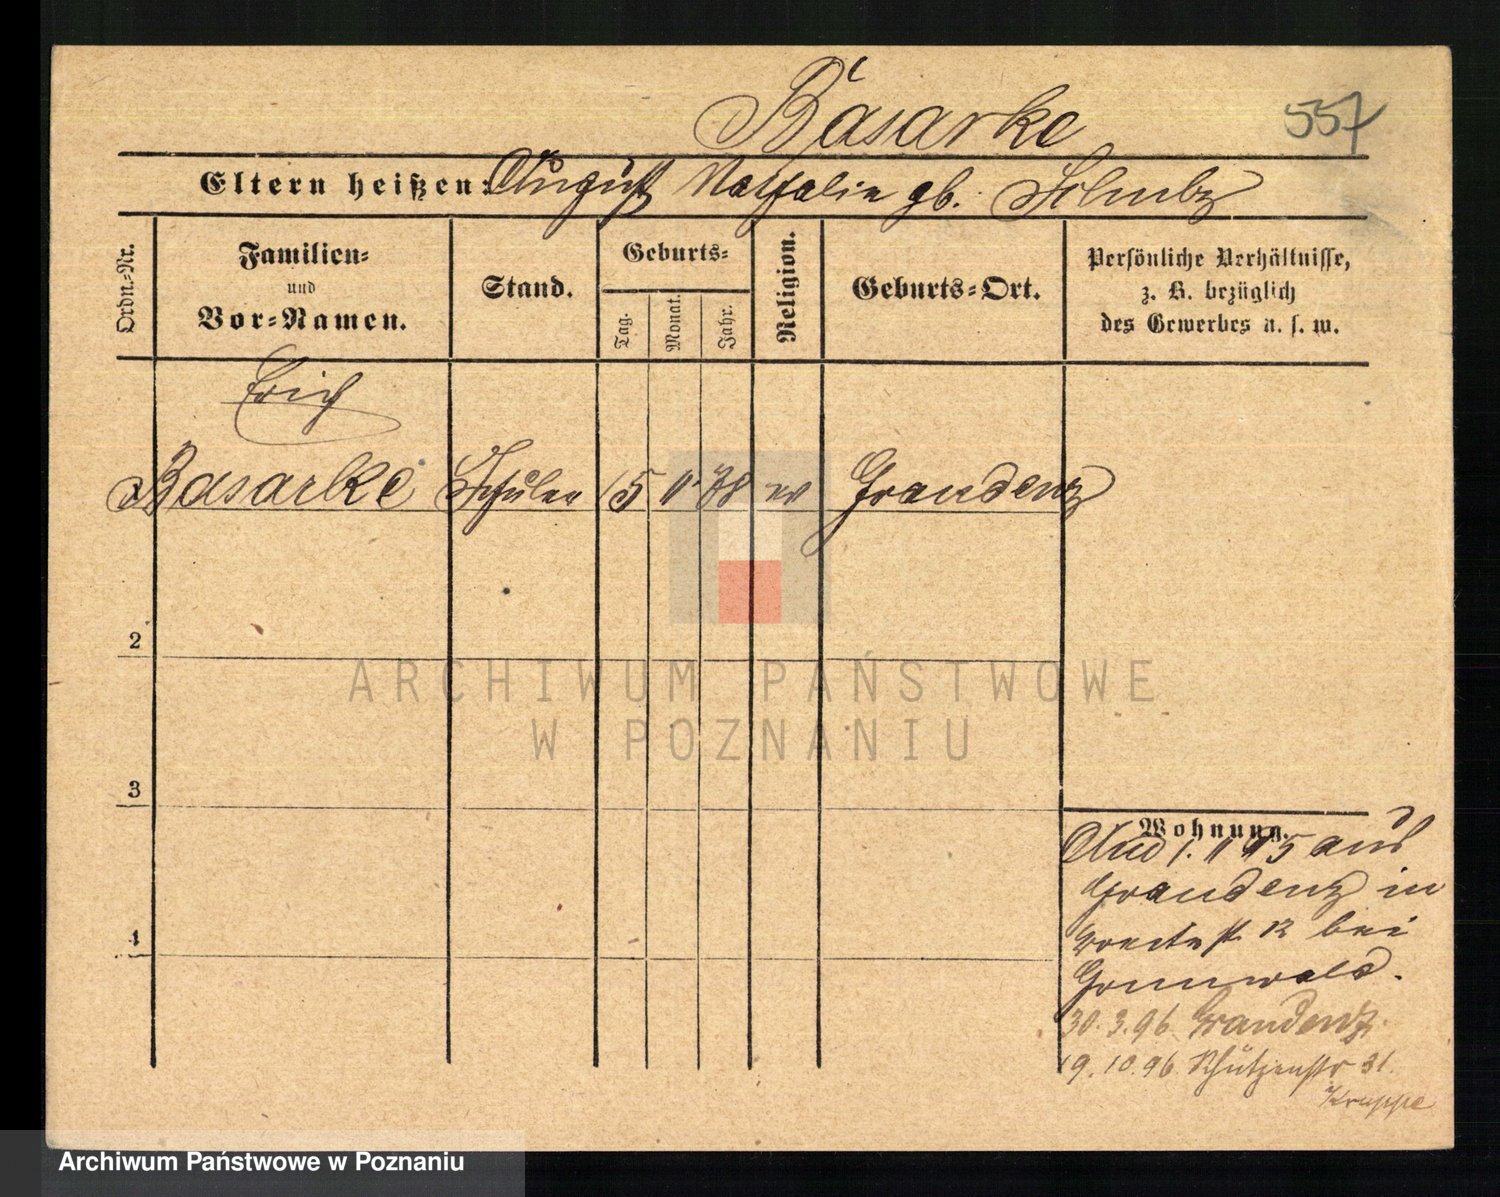 Basarke
557
Eltern heißen: August Nathalie gb. Schulz
Ordn.-Nr.
Familien-
und
Vor-Namen.
Stand.
Geburts-
Tag.
Monat.
Jahr.
Religion.
Geburts-Ort.
Persönliche Verhältnisse,
z. B. bezüglich
des Gewerbes u. s. w.
Erich
Basarke Schüler 15 11 78 ev Graudenz
2
3
4
Wohnung.
1. 11 95 aus
Graudenz in
12 bei
Grunwald.
30.3.96 Graudenz.
19.10.96 Schützenstr 31.
Kruppe
ARCHIWUM PAŃSTWOWE
W POZNANIU
Archiwum Państwowe w Poznaniu